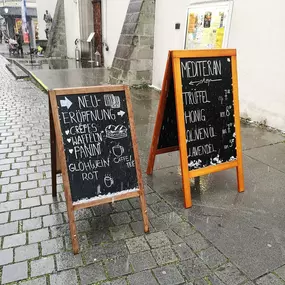 NEU-
ERÖFFNUNG
CRÊPES
WAFFELN
PANINI
COFFEE
TEE
GLÜHWEIN
ROT
MEDITERAN
TRÜFFEL
HONIG
OLIVEN ÖL
LAVENDEL
MEDI